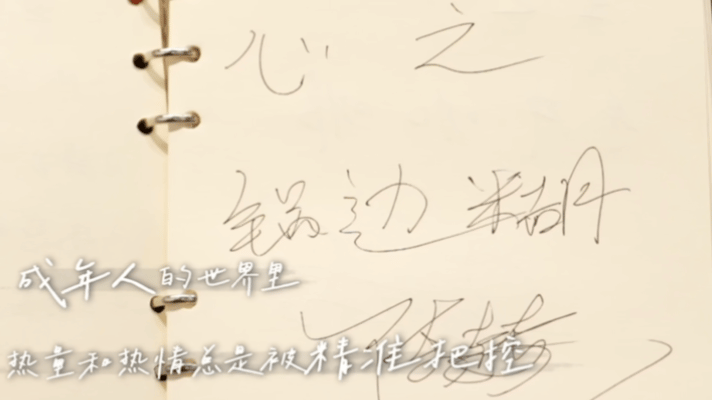 心之
锅边糊
成年人的世界里
热量和热情总是被精准把控